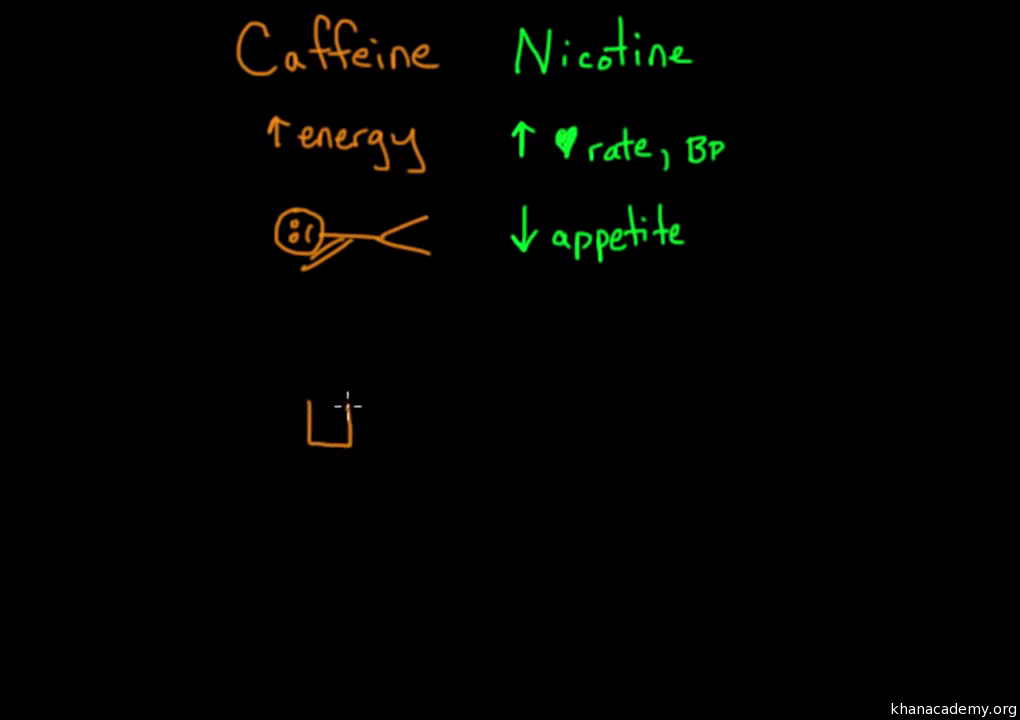 Caffeine
↑ energy
Nicotine
↑ ♥ rate, BP
↓ appetite
khanacademy.org